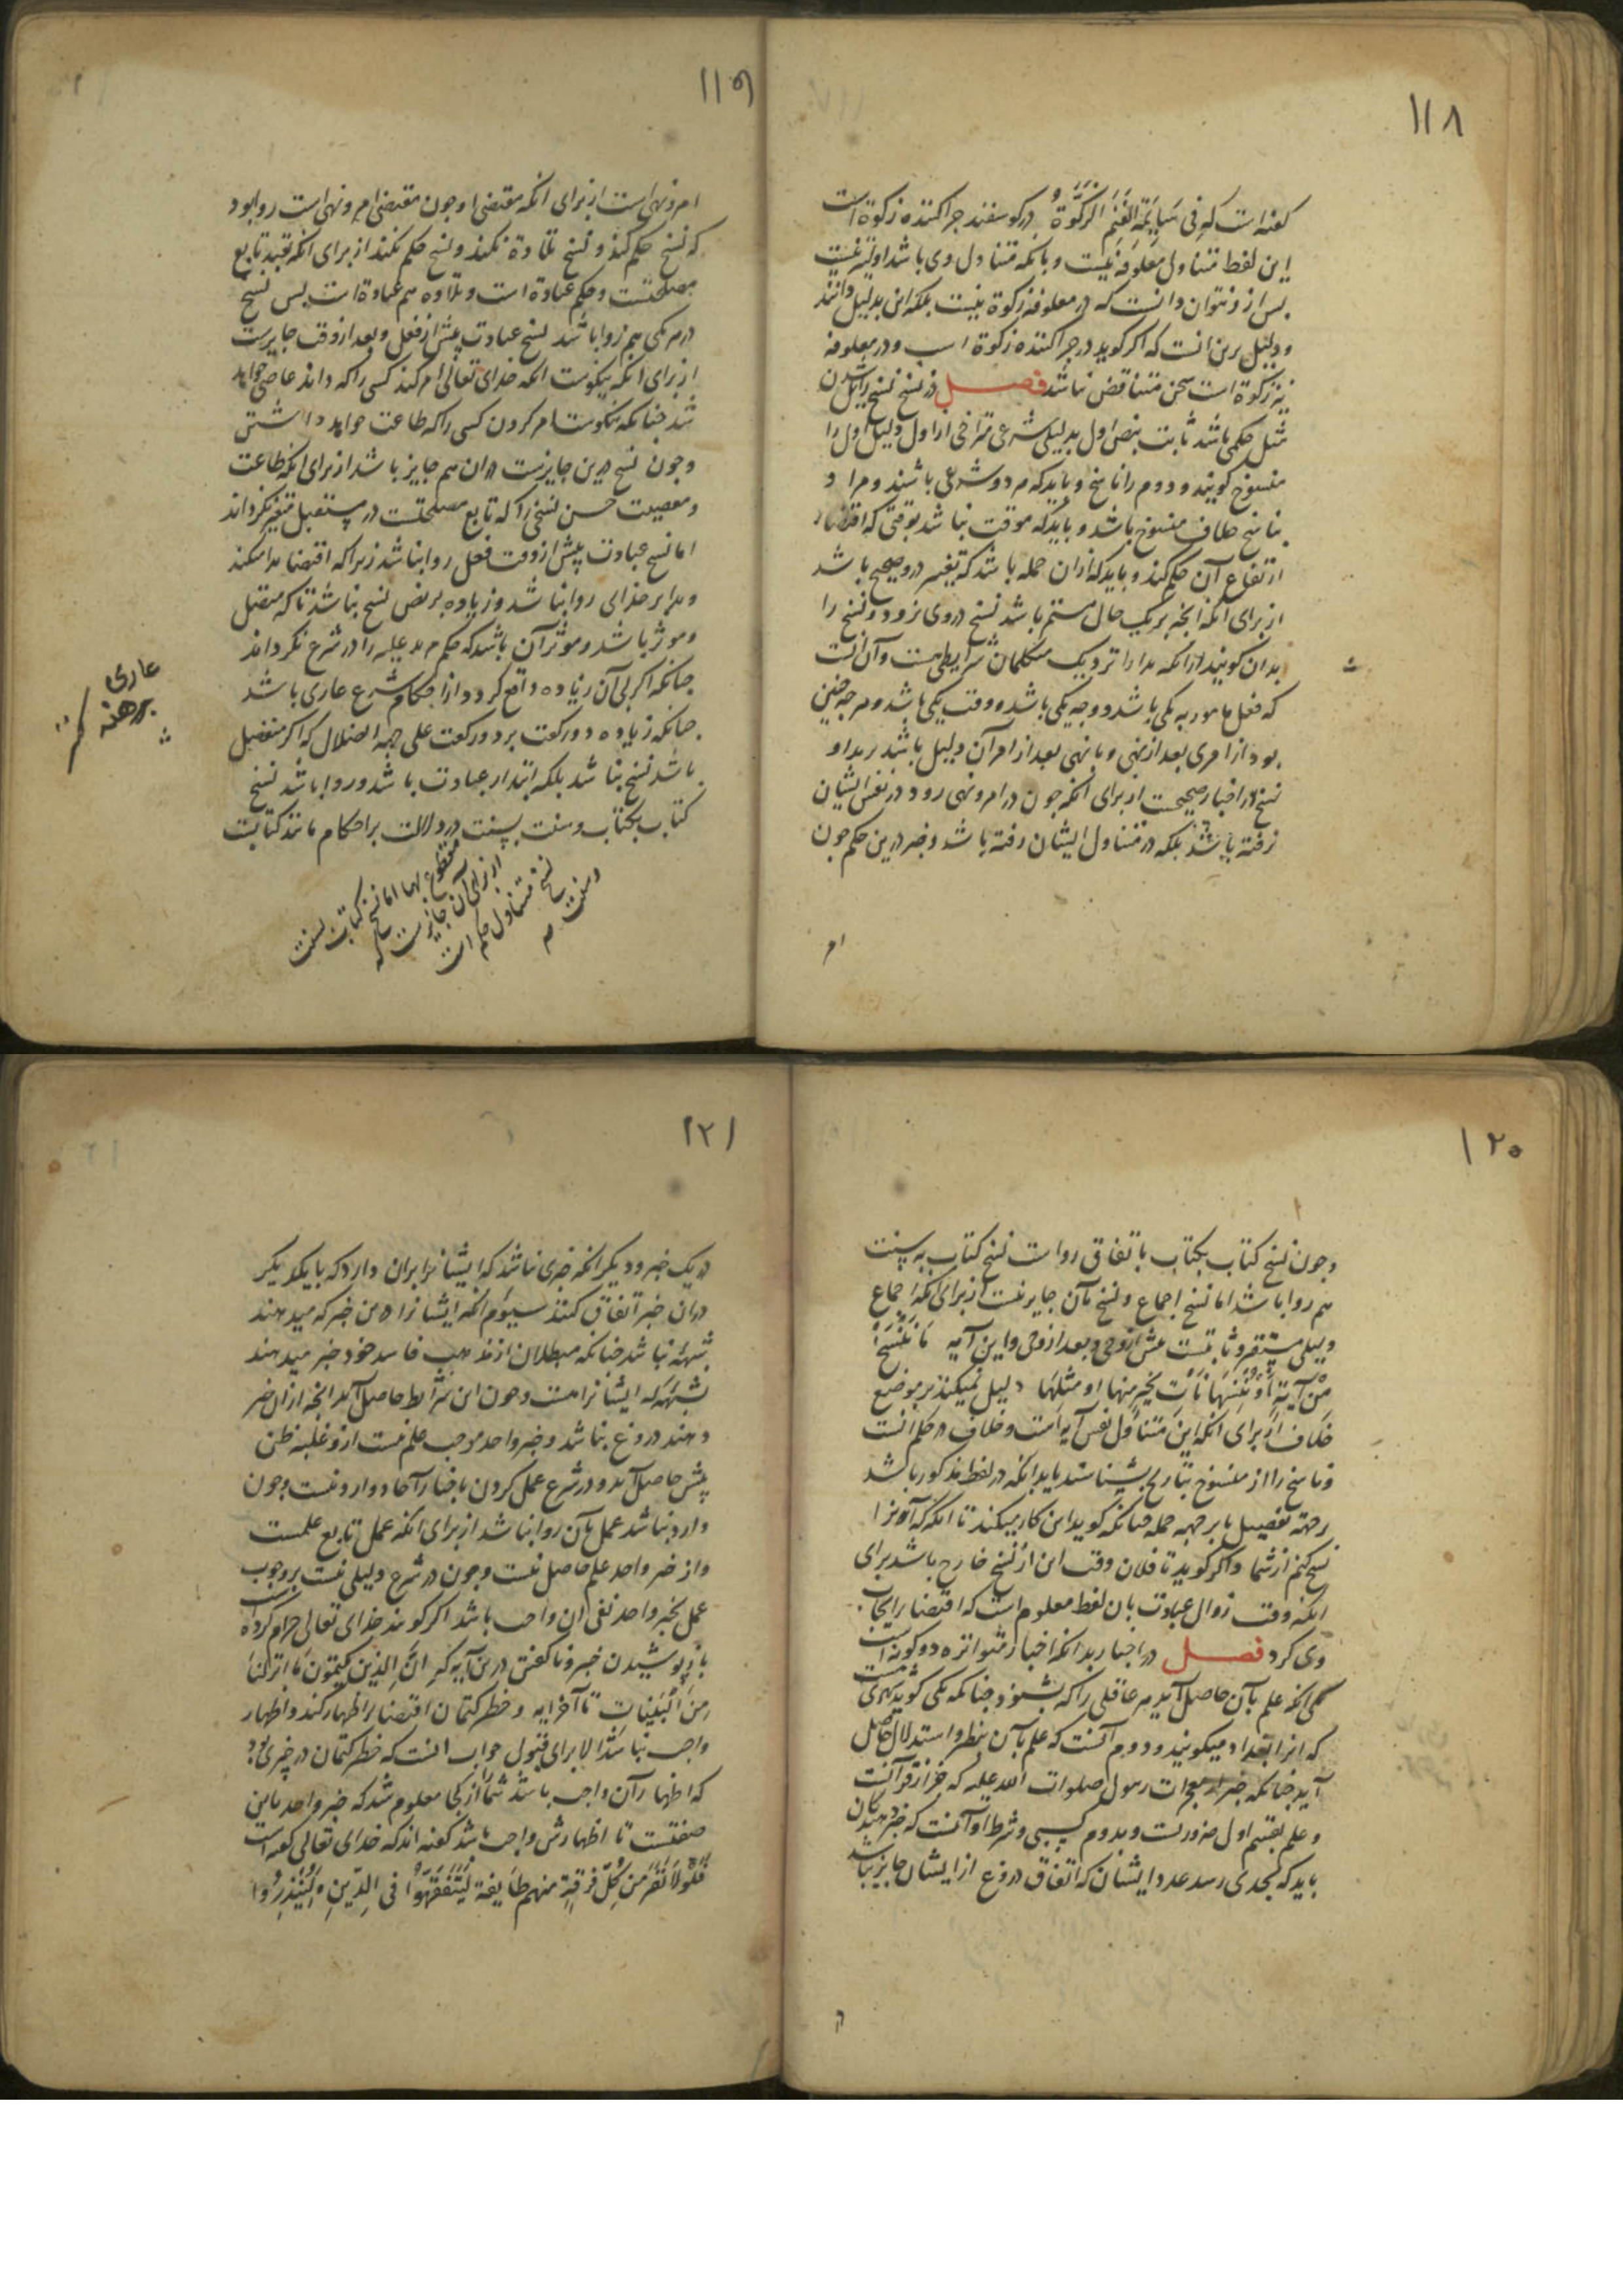 ۱۱۸
گفته است که فی سَایِمَةِ الغَنَمِ الزَّکوٰةُ در کوسفند جراکننده زکوة است
این لفظ متناول معلوفه نیست و بانکه متناول وی باشد اولیتر نیست
بس ازو نتوان دانست که در معلوفه زکوة نیست بلکه این بدلیل دانند
و دلیل برین انست که اکر کوید در جراکننده زکوة است و در معلوفه
نیز زکوة است سخن متناقض نباشد فصل در نسخ نسخ زایل شدن
مثل حکمی باشد ثابت بنص اول بدلیلی شرعی متراخی از اول دلیل اول را
منسوخ کویند و دوم را ناسخ و باید که هر دو شرعی باشند و مراد
بناسخ خلاف منسوخ باشد و باید که موقت نباشد بوقتی که اقتضاء
ارتفاع آن حکم کند و باید که ازان جمله باشد که تغییر درو صحیح باشد
از برای انکه انجه بر یک حال مستمر باشد نسخ در وی نرود و نسخ را
بدان کویند ازانکه بدا را نزدیک متکلمان شرایطی هست و آن انست
که فعل مامور به یکی باشد و وجه یکی باشد و وقت یکی باشد و هر جه جنین
بود از امری بعد از نهی و یا نهی بعد از امر آن دلیل باشد بر بدا و
نسخ در اخبار صحیحست از برای انکه جون در امر و نهی رود در نفس ایشان
نرفته باشد بلکه در متناول ایشان رفته باشد و خبر درین حکم جون
امر
۱۱۹
امر و نهی است از برای انکه مقتضی او جون مقتضی امر و نهی است روا بود
که نسخ حکم کنند و نسخ تلاوة نکنند و نسخ حکم نکنند از برای انکه تعبد تابع
مصلحتست و حکم عبادة است و تلاوه هم عبادة است بس نسخ
در هر یکی هم روا باشد نسخ عبادت پیش از فعل و بعد از وقت جایزست
از برای انکه نیکوست انکه خدای تعالی امر کند کسی را که داند عاصی خواهد
شد جنانکه نیکوست امر کردن کسی را که طاعت خواهد داشتن
و جون نسخ درین جایزست در ان هم جایز باشد از برای انکه طاعت
و معصیت حسن نسخی را که تابع مصلحتست در مستقبل متغیر نکرداند
اما نسخ عبادت پیش از وقت فعل روا نباشد زیرا که اقتضا بدا میکند
و بدا بر خدای روا نباشد و زیاده بر نص نسخ نباشد تا که متصل
و موثر باشد و موثر آن باشد که حکم مزید علیه را در شرع نکرداند
جنانکه اکر بی آن زیاده واقع کردد از احکام شرع عاری باشد
جنانکه زیاده دو رکعت بر دو رکعت علی جهة الاتصال که اکر منفصل
باشد نسخ نباشد بلکه ابتدار عبادت باشد و روا باشد نسخ
کتاب بکتاب و سنت بسنت در دلالت بر احکام مانند کتابست
مقطوع بها اما نسخ کتاب بسنت
از برای آن جایزست که
نسخ متناول حکم است
و سنت هم
عاری
برهنه
۱۲۰
و جون نسخ کتاب بکتاب باتفاق رواست نسخ کتاب به سنت
هم روا باشد اما نسخ اجماع و نسخ بآن جایز نیست از برای انکه اجماع
دلیلی مستقر و ثابتست پیش از وحی و بعد از وحی و این آیه مَا نَنْسَخْ
مِنْ آیَةٍ أَوْ نُنْسِهَا نَأْتِ بِخَیْرٍ مِنْهَا او مثلها دلیل نمیکند بر موضع
خلاف از برای انکه این متناول نفس آیه است و خلاف در حکم انست
و ناسخ را از منسوخ بتاریخ بشناسند یا بدانکه در لفظ مذکور باشد
بر جهة تفصیل یا بر جهه جمله جنانکه کوید این کار میکنید تا انکه که آنرا
نسخ کنم از شما و اکر کوید تا فلان وقت این از نسخ خارج باشد برای
انکه وقت زوال عبادت بان لفظ معلوم است که اقتضا برایجاب
وی کرد فصل در اخبار بدانکه اخبار متواتره دو کونه است
یکی انکه علم بآن حاصل آید هر عاقلی را که بشنود جنانکه یکی کوید شهری هست
که انرا بغداد میکویند و دوم آنست که علم بآن بنظر و استدلال حاصل
آید جنانکه خبر از معجزات رسول صلوات الله علیه که جز از قرآنست
و علم بقسم اول ضروریست و بدوم کسبی و شرط او آنست که خبر دهندکان
باید که بحدی رسد عدد ایشان که اتفاق دروغ از ایشان جایز نباشد
در
۱۲۱
در یک خبر و دیکر انکه جیزی نباشد که ایشانرا بران دارد که با یکدیکر
دران خبر اتفاق کنند سیوم انکه ایشانرا درین خبر که میدهند
شبهة نباشد جنانکه مبطلان از مذهب فاسد خود خبر میدهند
بشبهة که ایشانراست و جون این شرایط حاصل آمد انجه ازان خبر
دهند دروغ نباشد و خبر واحد موجب علم نیست ازو غلبه ظن
بیش حاصل آید و در شرع عمل کردن باخبار آحاد وارد نیست و جون
وارد نباشد عمل بآن روا نباشد از برای انکه عمل تابع علمست
و از خبر واحد علم حاصل نیست و جون در شرع دلیلی نیست بر وجوب
عمل بخبر واحد نفی آن واجب باشد اکر کویند خدای تعالی حرام کرده است
باز پوشیدن خبر و ناکفتن درین آیه که اِنَّ الَّذِینَ یَکْتُمُونَ مَا اَنْزَلْنَا
مِنَ الْبَیِّنَاتِ تا آخر آیه و حظر کتمان اقتضا بر اظهار کند و اظهار
واجب نباشد الا برای قبول جواب انست که حظر کتمان در خبری بود
که اظهار آن واجب باشد شما را از کجا معلوم شد که خبر واحد باین
صفتست تا اظهارش واجب باشد کفته اند که خدای تعالی کفته است
فَلَوْلَا نَفَرَ مِنْ کُلِّ فِرْقَةٍ مِنهم طَایِفَة لِیَتَفَقَّهُوا فِی الدِّینِ وَلِیُنْذِرُوا